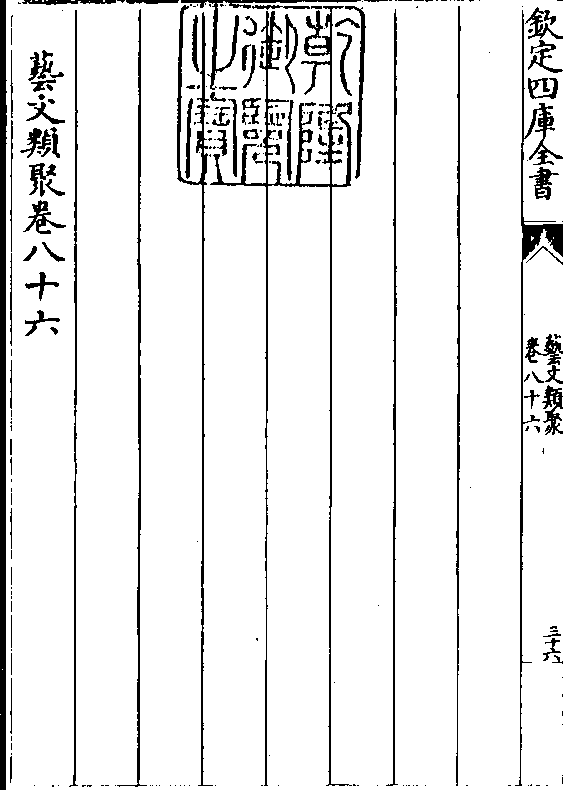 欽定四庫全書
藝文類聚
卷八十六
三十六
乾隆
御覽
之寶
藝文類聚卷八十六